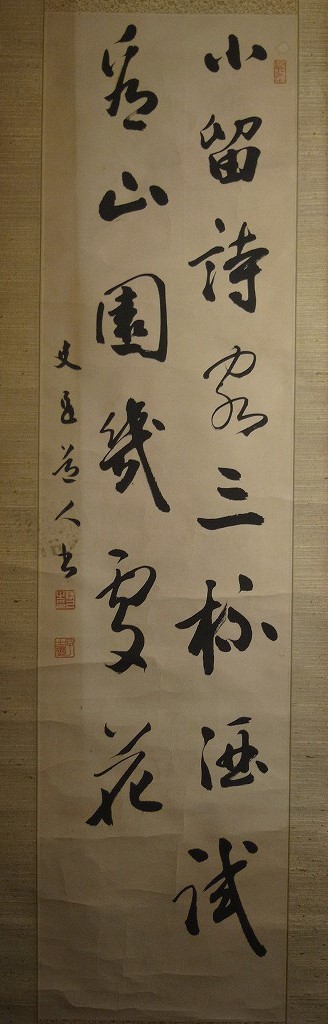 小留詩客三杯酒試
看山園幾處花
道人書